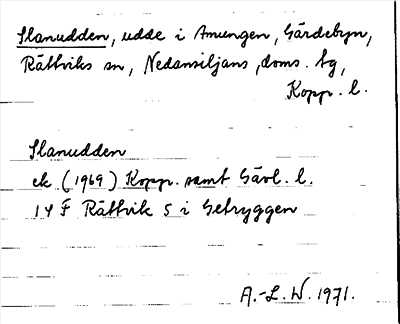 Slanudden, udde i Amungen, Gärdebyn,
Rättviks sn, Nedansiljans doms. tg,
Kopp. l.
Slanudden
ek (1969) Kopp. samt Gävl. l.
14 F Rättvik S i Getryggen
A.-L. W. 1971.